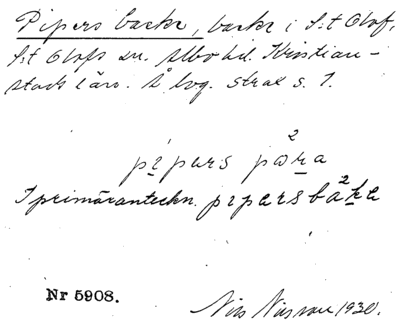 Pipers backe, backe i S:t Olof,
S:t Olofs sn. Albo hd. Kristian-
stads län. Å bog. strax s. 1.
pipars para
I primäranteckn. pipars baka
Nr 5908.
Nils 1930.